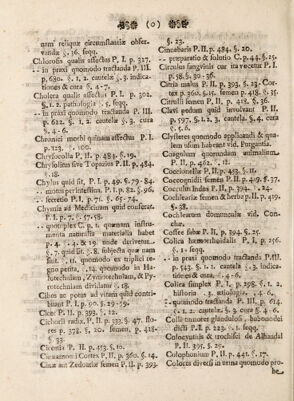 (o)
nam reliquæ circumstantiæ obser-
vandæ §. 36. seqq.
Chlorosis qualis affectus P. I. p. 317.
-- in praxi quomodo tractanda P. III.
p. 630. §. 1. 2. cautelæ §. 3. indica-
tiones & cura §. 4-7.
Cholera qualis affectus P. I. p. 302.
§. 1. 2. pathologia §. 5. seqq.
-- in praxi quomodo tractanda P. III.
p. 632. §. 1. 2. cautelæ §. 3. cura
§. 4-6.
Chronici morbi quinam affectus P. I.
p. 123. §. 100.
Chrysocolla P. II. p. 484. §. 19.
Chrysolitus sive Topazius P. II. p. 484.
§. 18.
Chylus quid sit, P. I. p. 49. §. 79-84.
-- motus peristalticus, P. I. p. 82. §. 96.
-- secretio P. I. p. 71. §. 65-74.
Chymia ad Medicinam quid conferat.
P. I. p. 7. §. 57-58.
-- quotuplex C. p. 1. quænam instru-
menta naturalia materialis habet
p. 4. & 19. unde derivetur.
§. 7. quid sit §. 8. subjecta quæ nam
sint, §. 16. quomodo ex triplici re-
gno petita, §. 14. quomodo in Ha-
lotechniam, Zymotechniam, & Py-
rotechniam dividatur §. 18.
Cibus ac potus ad vitam quid contri-
buant P. I. p. 90. §. 29-159.
Cicer P. II. p. 393. §. 12.
Cichorii radix, P. II. p. 333. §. 47. flo-
res p. 372. §. 20. semen, p. 418.
§. 33.
Cicuta P. II. p. 453. §. 10.
Cinnamomi Cortex P. II. p. 360. §. 14.
Cinæ aut Zedoariæ semen P. II. p. 393.
§. 23.
Cinnabaris P. II. p. 484. §. 20.
-- præparatio & solutio C. p. 44. §. 25.
Circulus sanguinis cur ita vocetur P. I.
p. 58. §. 30-36.
Citrus malus P. II. p. 393. §. 23. Cor-
tex p. 360. §. 15. flores p. 408. §. 35.
Citrulli semen P. II. p. 418. §. 36.
Clavi pedum quid involvant P. II.
p. 597. §. 1. 2. 3. cautelæ §. 4. cura
§. 6.
Clysteres quomodo applicandi & qua-
lem usum habeant vid. Purgantia.
Coagulum quorundam animalium.
P. II. p. 462. §. 11.
Coccionella P. II. p. 453. §. 11.
Coccognidii semen P. II. p. 419. §. 37.
Cocculus Indus P. II. p. 394. §. 24.
Cochlearia semen & herba P. II. p. 419.
§. 38.
Cochlearum domuncula vid. Con-
chæ.
Coffee fabæ P. II. p. 394. §. 25.
Colica hæmorrhoidalis P. I. p. 256.
§. 1. seqq.
-- in praxi quomodo tractanda P. III.
p. 543. §. 1. 2. cautelæ §. 3. indica-
tiones & cura, §. 4-6.
Colica simplex P. I. p. 298. §. 1. 2.
historia §. 3. ætiologia §. 4.
-- quomodo tractanda P. III. p. 614.
§. 1. 2. cautelæ §. 3. cura §. 6-8.
Colli tumores glandulosi, bubones di-
dicti P. I. p. 223. §. 1. seqq.
Colocynthis & trochisci de Alhandal
P. II. p. 395. §. 26.
Colophonium P. II. p. 441. §. 17.
Colores diversi in urina quomodo pro-
be